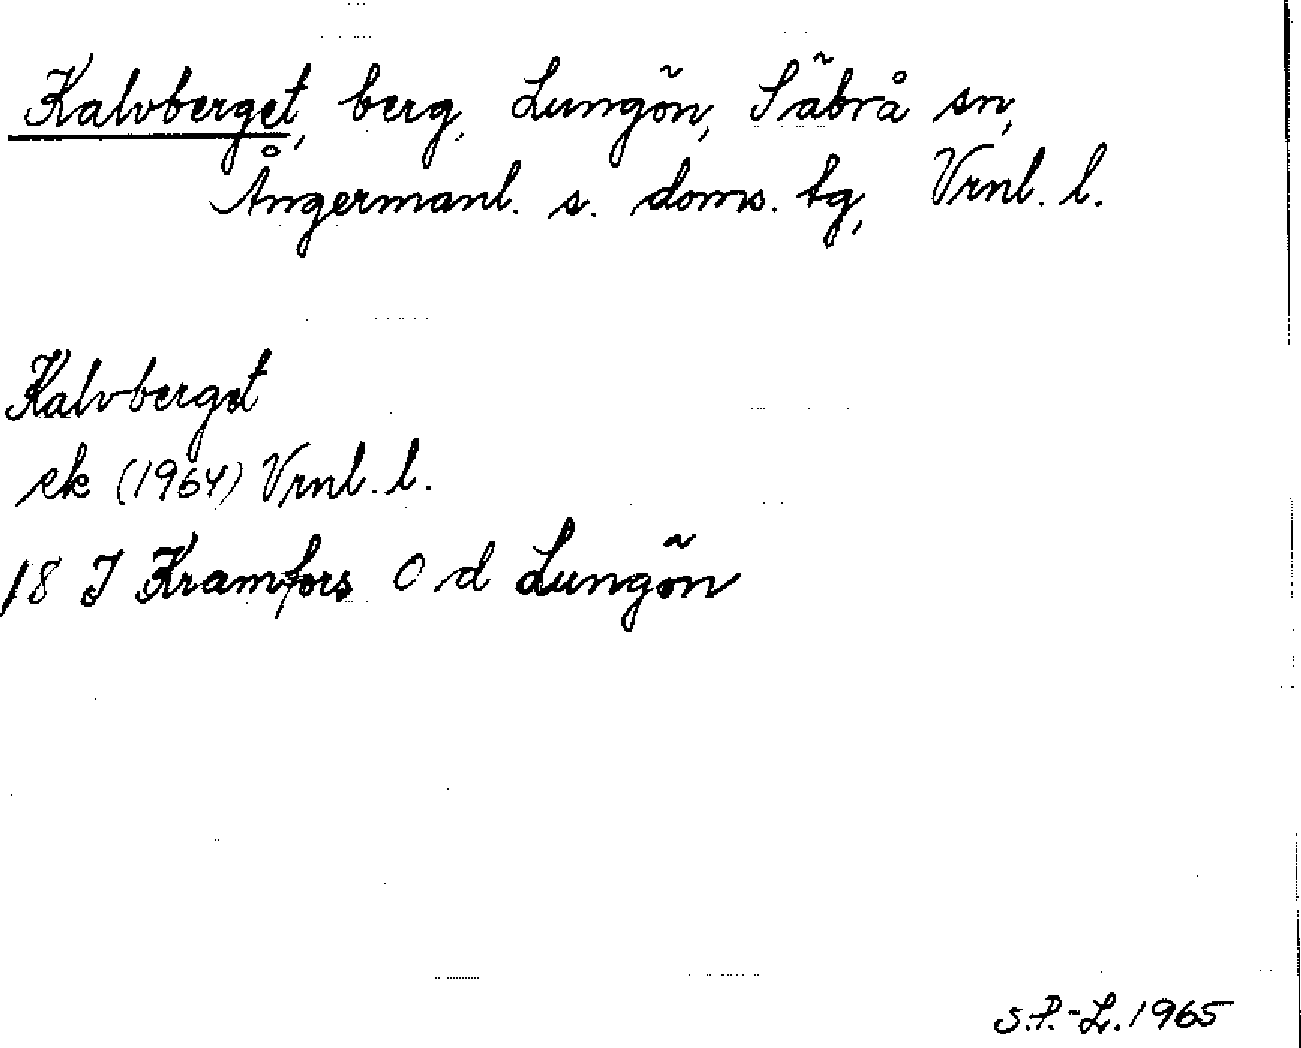 Kalvberget, berg, Lungön, Säbrå sn,
Ångermanl. s. doms. tg, Vrnl. l.
Kalvberget
ek (1964) Vrnl. l.
18 I Kramfors 0 d Lungön
S.P.-L. 1965